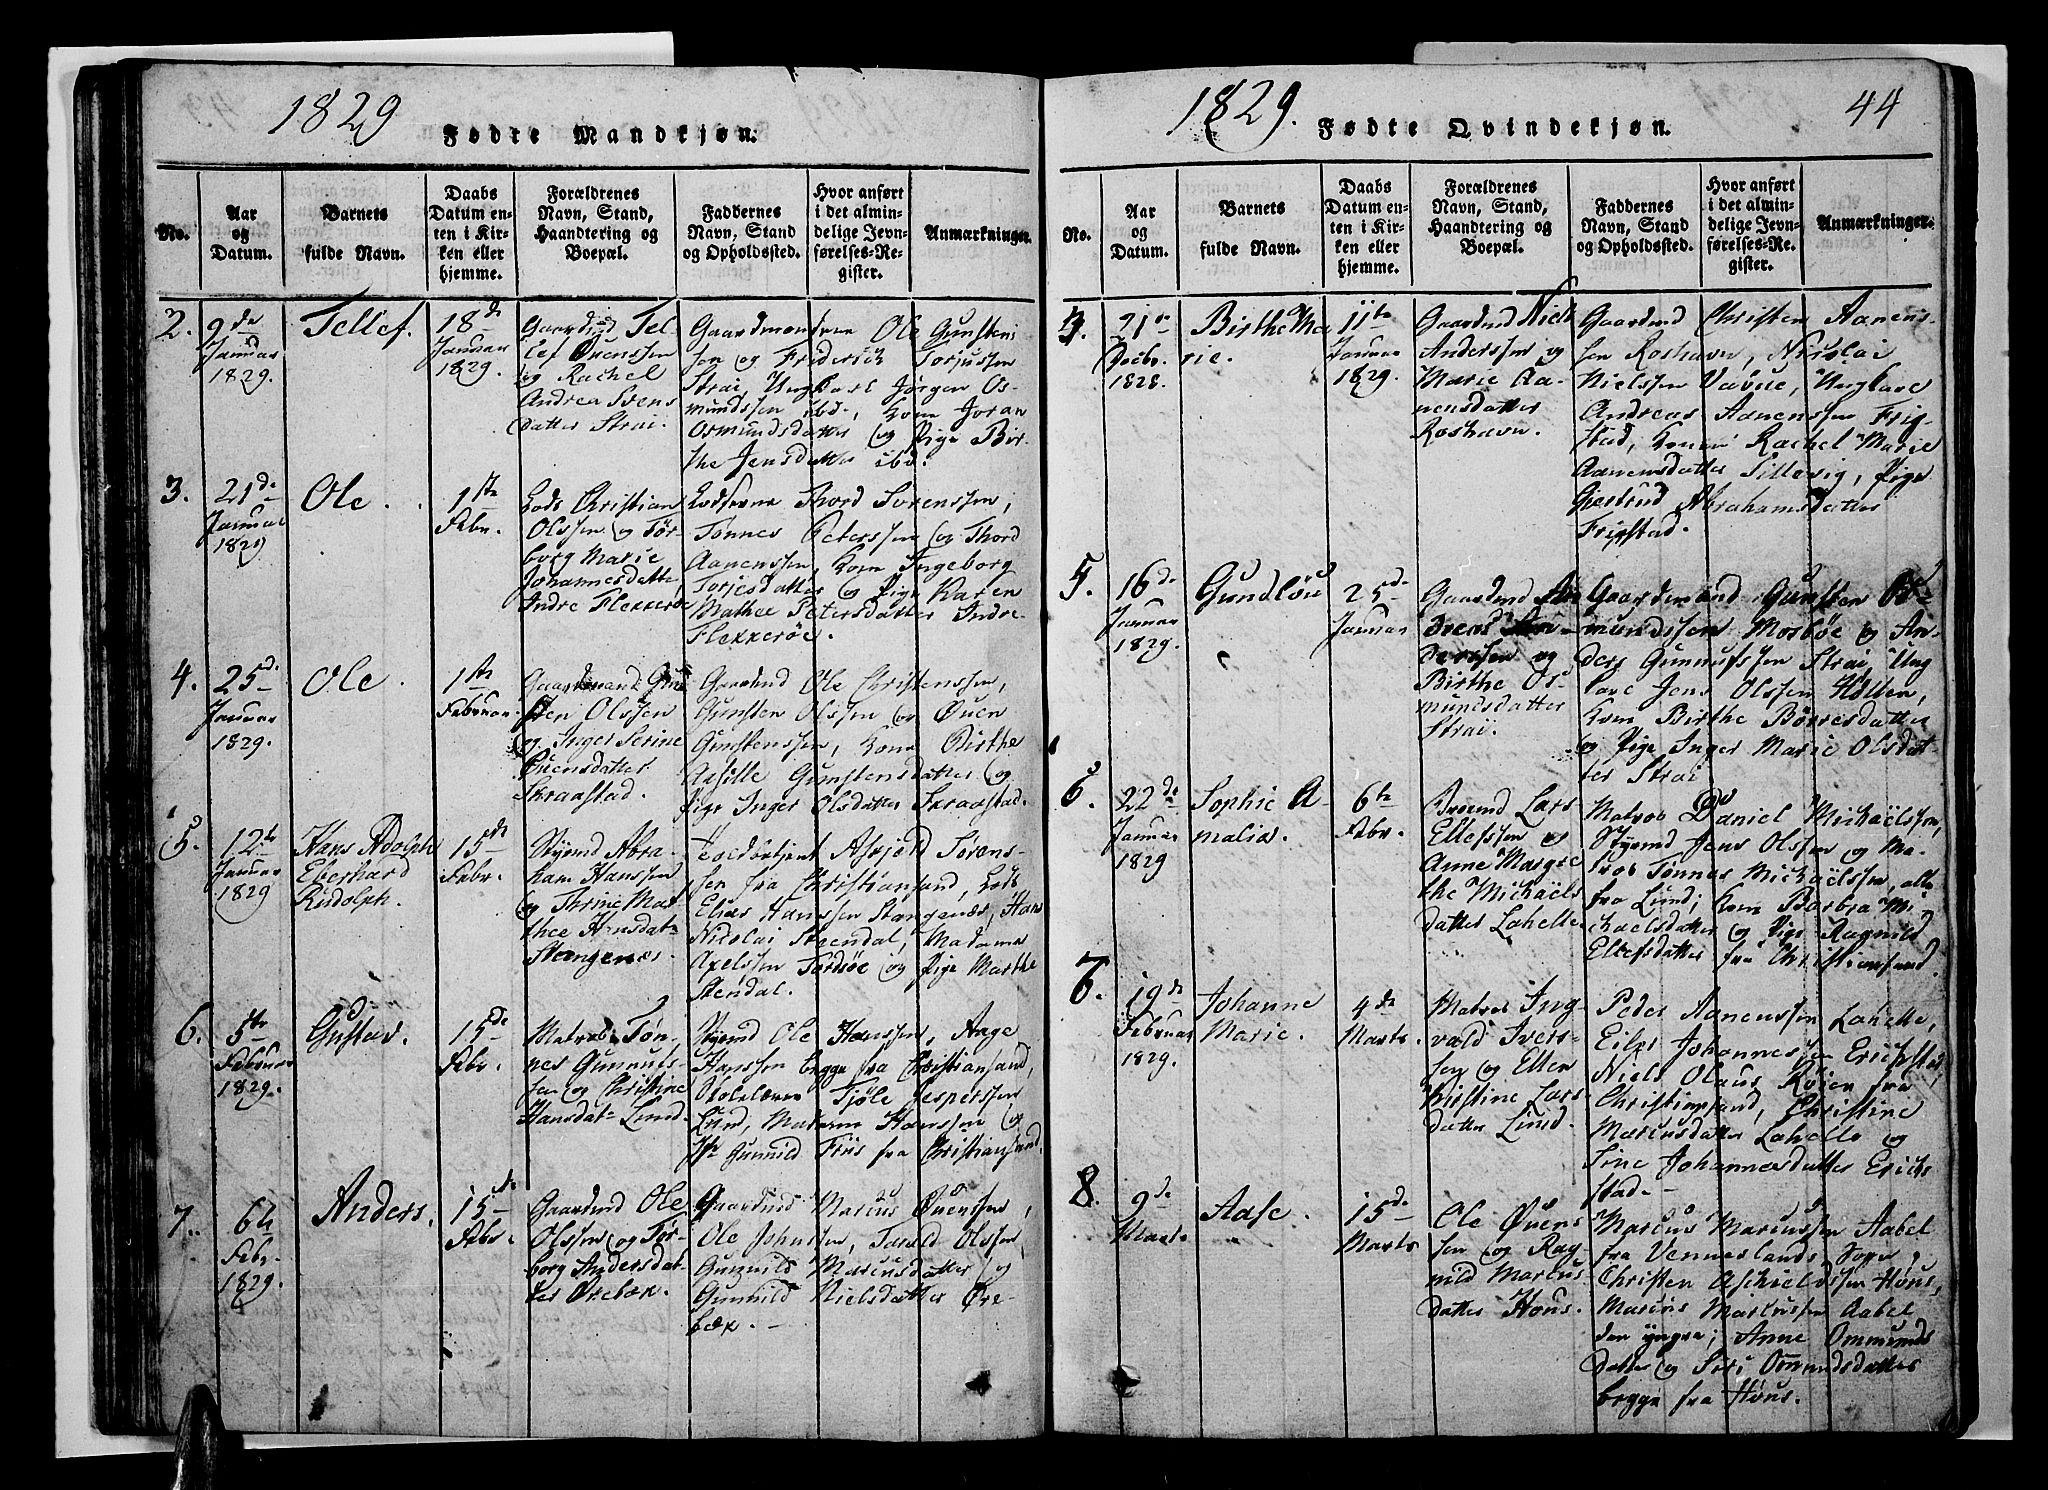 1829
Fødte Mandkjøn.
No.
Aar
og
Datum.
Barnets
fulde Navn.
Daabs
Datum en-
ten i Kir-
ken eller
hjemme.
Forældrenes
Navn, Stand,
Haandtering og
Boepæl.
Faddernes
Navn, Stand
og Opholdssted.
Hvor anført
i det almin-
delige Jevn-
førelses-Re-
gister.
Anmærkninger.
2.
9de
Januar
1829.
Tellef.
18de
Januar
1829.
Gaardmd Tel-
lef Øuenssen
og Rachel
Andrea Svens
datter Strai.
Gaardmændene Ole Gunsten
sen og Friderich Torjussen
Strai, Ungkarl Jørgen Os-
mundssen ibd, Kone Joran
Osmundsdatter og Pige Bir-
the Jensdatter ibd.
3.
21de
Januar
1829
Ole.
1ste
Febr.
Lods Christian
Olssen og Tør-
borg Marie
Johannesdatter
Indre Flekkerøe
Lodserne Thord Sørenssen,
Tønnes Peterssen og Thord
Aanenssen, Kone Ingeborg
Torjesdatter og Pige Karen
Mathea Petersdatter Indre
Flekkerøe.
4.
25de
Januar
1829.
Ole.
1ste
Februar.
Gaardmand Gun
sten Olssen
og Inger Serine
Øuensdatter
Skraastad.
Gaardmd Ole Christenssen,
Gunsten Olssen og Øuen
Gunstenssen, Kone Birthe
Gunstensdatter og
Pige Inger Olsdatter Skraastad.
5.
12te
Januar
1829
Hans Adolph
Eberhard
Rudolph.
15de
Febr.
Styrmd Abra
ham Hanssen
og Thrine Mar
thee Hansdat-
Stangenæs.
Askjerd Sørens-
sen fra Christiansand, Lods
Elias Hanssen Stangenæs, Hans
Nicolai Steendal, Madame
Axelssen Tordsøe og Pige Marthe
Stendal.
6.
5te
Februar
1829.
Gustav.
15de
Febr.
Matros Tøn-
nes Gunnufs-
sen og Christine
Hansdatr Lund.
Styrmd Ole Hanssen, Aage
Hanssen begge fra Christiansand,
Skolelærer Tjøle Jesperssen
Lund, Madame Hanssen og
Jfr Gunnild Friis fra Christiansand.
7.
6te
Febr.
1829.
Anders.
15de
Febr.
Gaardmd Ole
Olssen og Tør-
borg Andersdat-
ter Ørebæk.
Gaardmd Marcus Øuenssen,
Ole Johnssen, Tarald Olssen,
Gunnild Marcusdatter og
Gunnild Nielsdatter Øre-
bæk.
1829.
Fødte Qvindekjøn.
44
No.
Aar
og
Datum.
Barnets
fulde Navn.
Daabs
Datum en-
ten i Kir-
ken eller
hjemme.
Forældrenes
Navn, Stand,
Haandtering og
Boepæl.
Faddernes
Navn, Stand
og Opholdssted.
Hvor anført
i det almin-
delige Jevn-
førelses-Re-
gister.
Anmærkninger.
21de
Decbr.
1828.
Birthe Ma
rie.
11te
Januar
1829.
Gaardmd Niels
Anderssen og
Marie Aa-
nensdatter
Roshavn.
Gaardmd Christen Aanens-
sen Roshavn, Nicolai
Nielssen Vabue, Ungkarl
Andreas Aanenssen Frig-
stad, Kone Rachel Marie
Aanensdatter Tillevig, Pige
Gjertrud Abrahamsdatter
Frigstad.
5.
16de
Januar
1829.
Gundløu
25de
Januar
Gaardmd An
dreas
derssen og
Birthe Os-
mundsdatter
Strai.
Gaardmænd Gunsten Os-
mundssen Mosbøe og An-
ders Gunnufssen Strai, Ung
karl Jens Olssen Holten,
Kone Birthe Børresdatter
og Pige Inger Marie Olsdat-
ter Strai
6.
22de
Januar
1829
Sophie A-
malia.
6te
Febr.
Lars
Ellefssen og
Anne Margre
the Michaëls
datter Lahelle.
Matros Daniel Michaëlssen,
Styrmd Jens Olssen og Ma-
tros Tønnes Michaëlssen, alle
fra Lund; Kone Barbra Mi-
kaelsdatter og Pige Ragnild
Ellefsdatter fra Christiansand.
7.
19de
Februar
1829.
Johanne
Marie.
4de
Marts.
Matros Ing
vald Ivers-
sen og Ellen
Kirstine Lars
datter Lund.
Peder Aanenssen Lahelle,
Eiler Johannessen Erichstad,
Niels Olaus Kojen fra
Christiansand, Christine
Marcusdatter Lahelle og
Sine Johannesdatter Erich
stad.
8.
9de
Marts
Aase.
15de
Marts
Ole Øuens
sen og Rag-
nild Marcus
datter Høus.
Marcus Marcussen Aabel
fra Vennesland Sogn,
Christen Aschieldssen Høus,
Marcus Marcussen Aabel
den yngre; Anne Ommunds
datter og Siri Ommundsdatter
begge fra Høus.